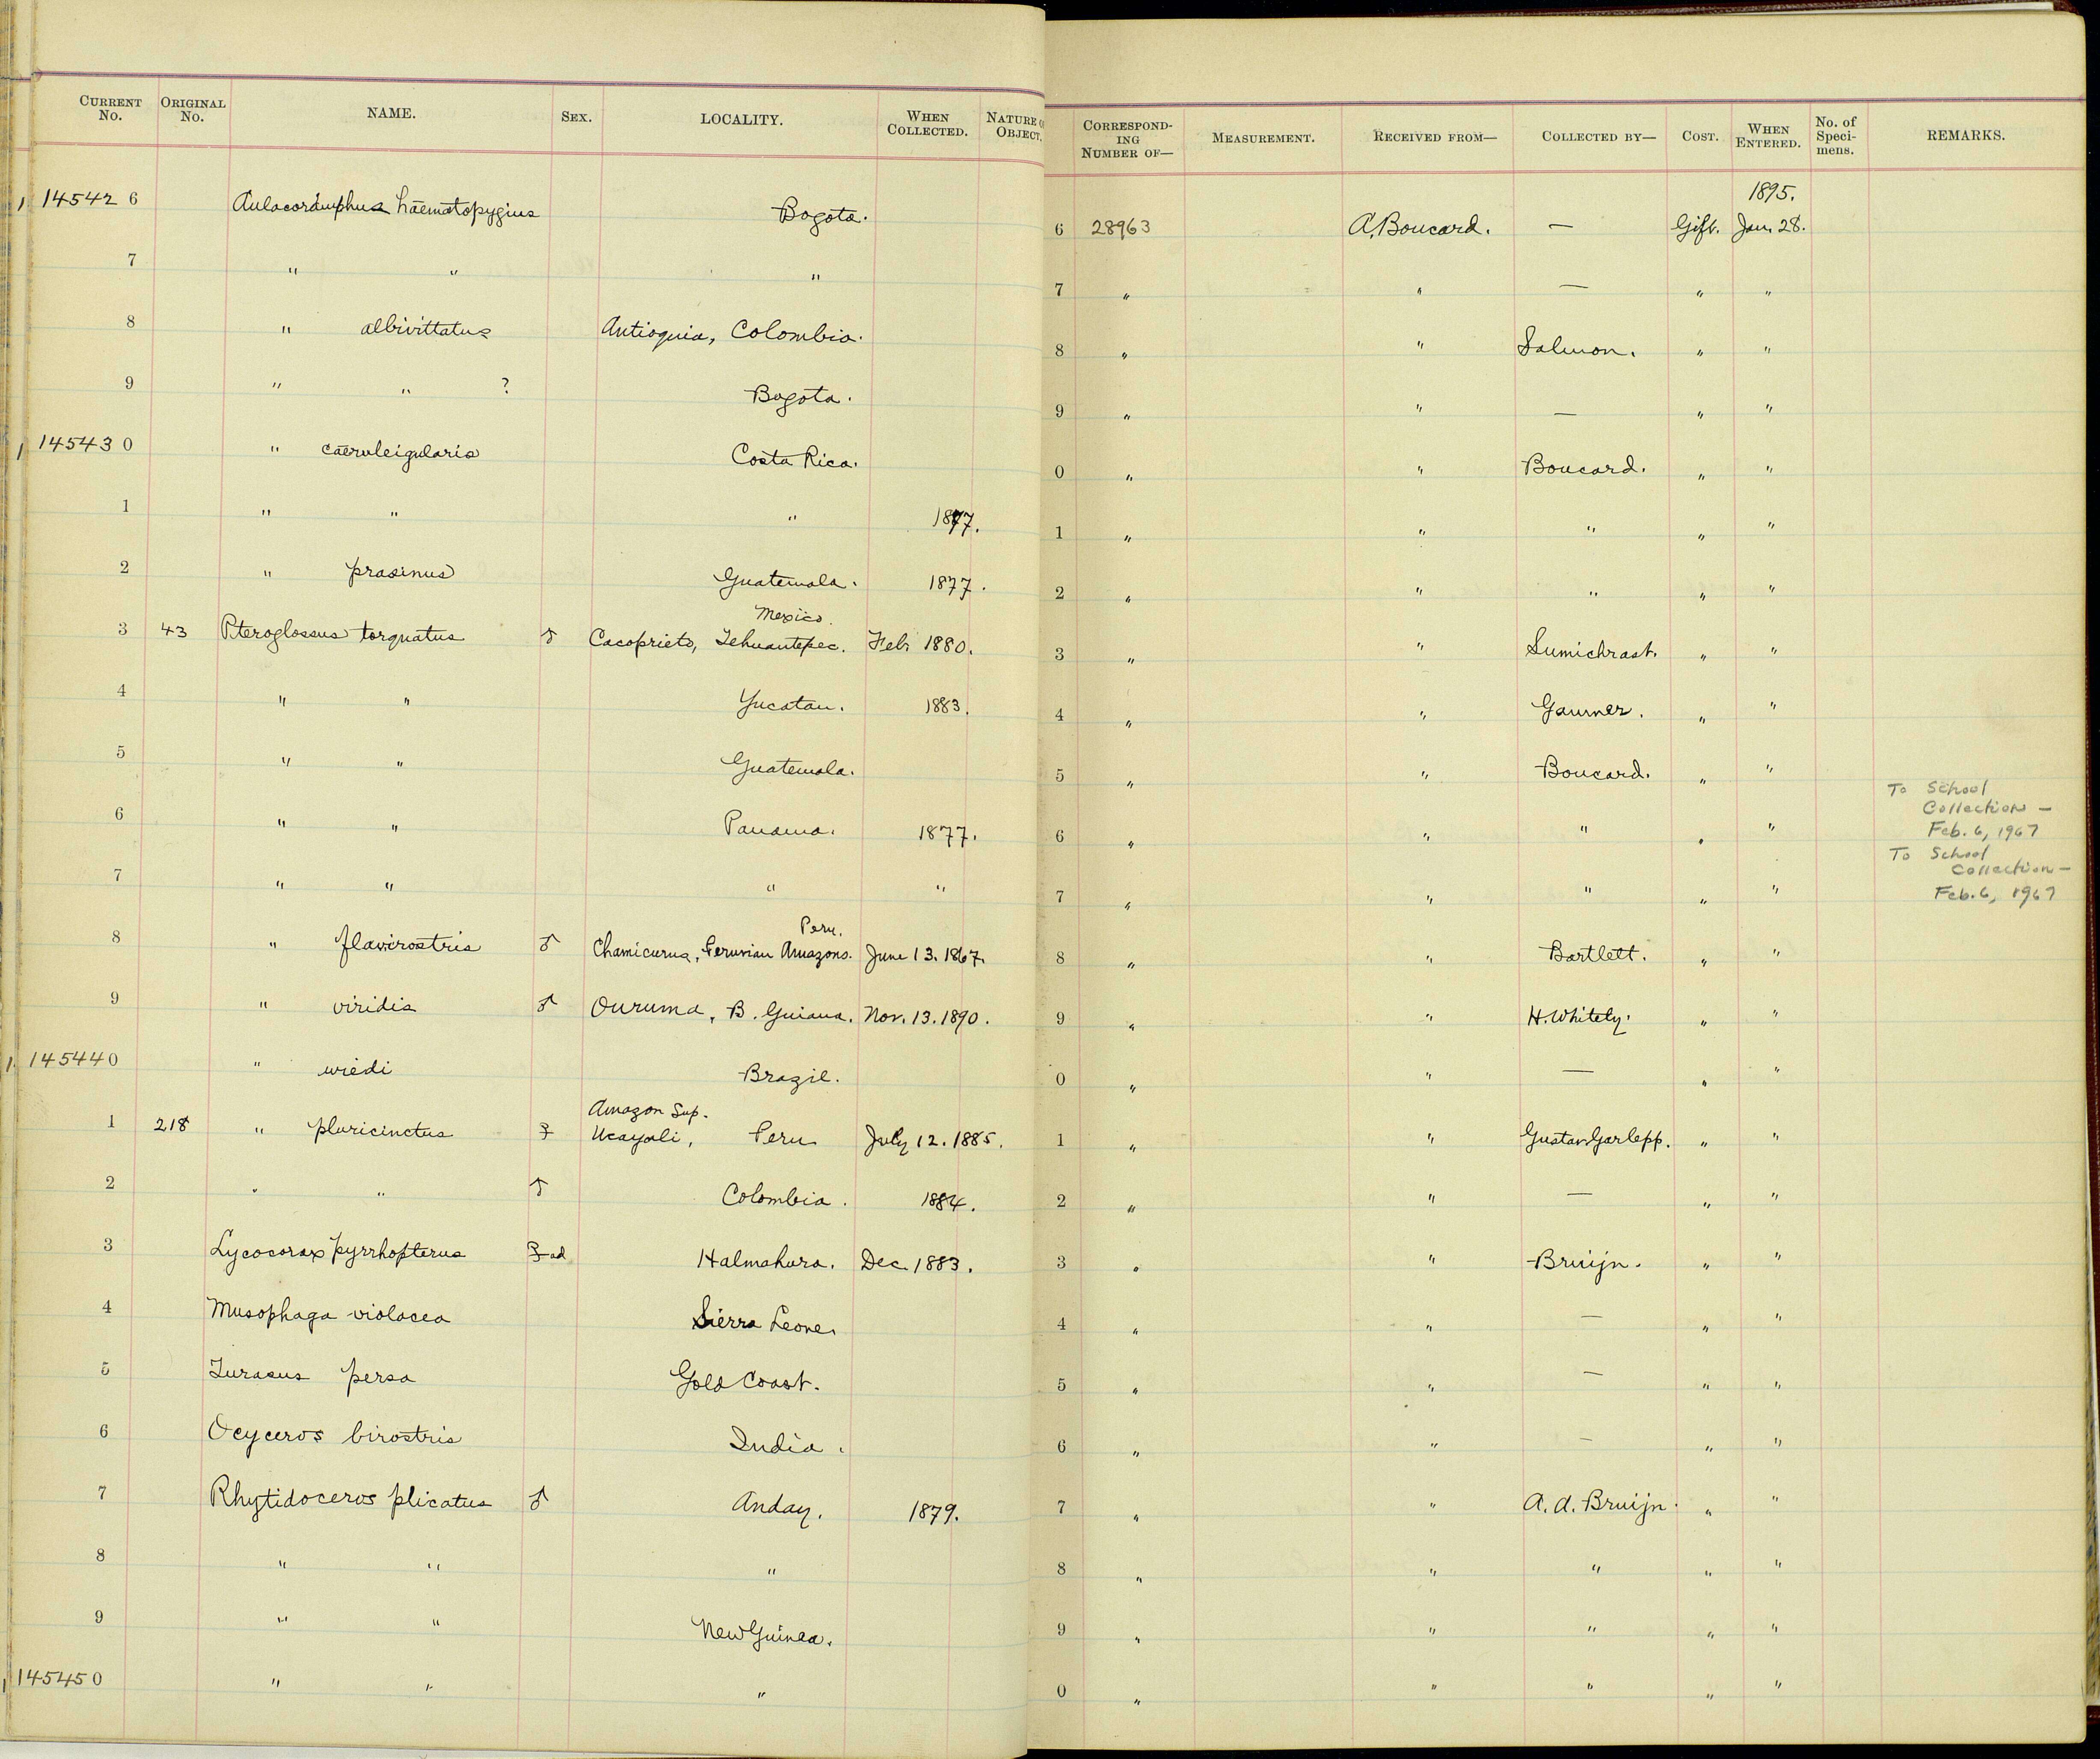 CURRENT No. ORIGINAL No. NAME. SEX. LOCALITY. WHEN COLLECTED. NATURE OBJECT. CORRESPONDING NUMBER OF— MEASUREMENT. RECEIVED FROM— COLLECTED BY— COST. WHEN ENTERED. No. of Specimens. REMARKS.
1895.
145426 Aulacoramphus haematopygius Bogota. 6 28963 A. Boucard. — Gift. Jan. 28.
7 " " " 7 " " — " "
8 " albivittatus Antioquia, Colombia. 8 " " Salmon. " "
9 " " ? Bogota. 9 " " — " "
145430 " caeruleigularis Costa Rica. 0 " " Boucard. " "
1 " " " 1877. 1 " " " " "
2 " prasinus Guatemala. 1877. 2 " " " " "
Mexico.
3 43 Pteroglossus torquatus ♂ Cacoprieto, Tehuantepec. Feb. 1880. 3 " " Sumichrast. " "
4 " " Yucatan. 1883. 4 " " Gaumer. " "
5 " " Guatemala. 5 " " Boucard. " "
6 " " Panama. 1877. 6 " " " " " To School Collection — Feb. 6, 1967
7 " " " " 7 " " " " " To School Collection — Feb. 6, 1967
Peru.
8 " flavirostris ♂ Chamicurus, Peruvian Amazons. June 13. 1867. 8 " " Bartlett. " "
9 " viridis ♂ Ourumа, B. Guiana. Nov. 13. 1890. 9 " " H. Whitely. " "
145440 " wiedi Brazil. 0 " " — " "
Amazon Sup.
1 218 " pluricinctus ♀ Ucayali, Peru July 12. 1885. 1 " " Gustav Garlepp. " "
2 " " ♂ Colombia. 1884. 2 " " — " "
3 Lycocorax pyrrhopterus ♀ ad Halmahera. Dec. 1883. 3 " " Bruijn. " "
4 Musophaga violacea Sierra Leone. 4 " " — " "
5 Turacus persa Gold Coast. 5 " " — " "
6 Ocyceros birostris India. 6 " " — " "
7 Rhytidoceros plicatus ♂ Anday. 1879. 7 " " A. A. Bruijn. " "
8 " " " 8 " " " " "
9 " " New Guinea. 9 " " " " "
145450 " " " 0 " " " " "